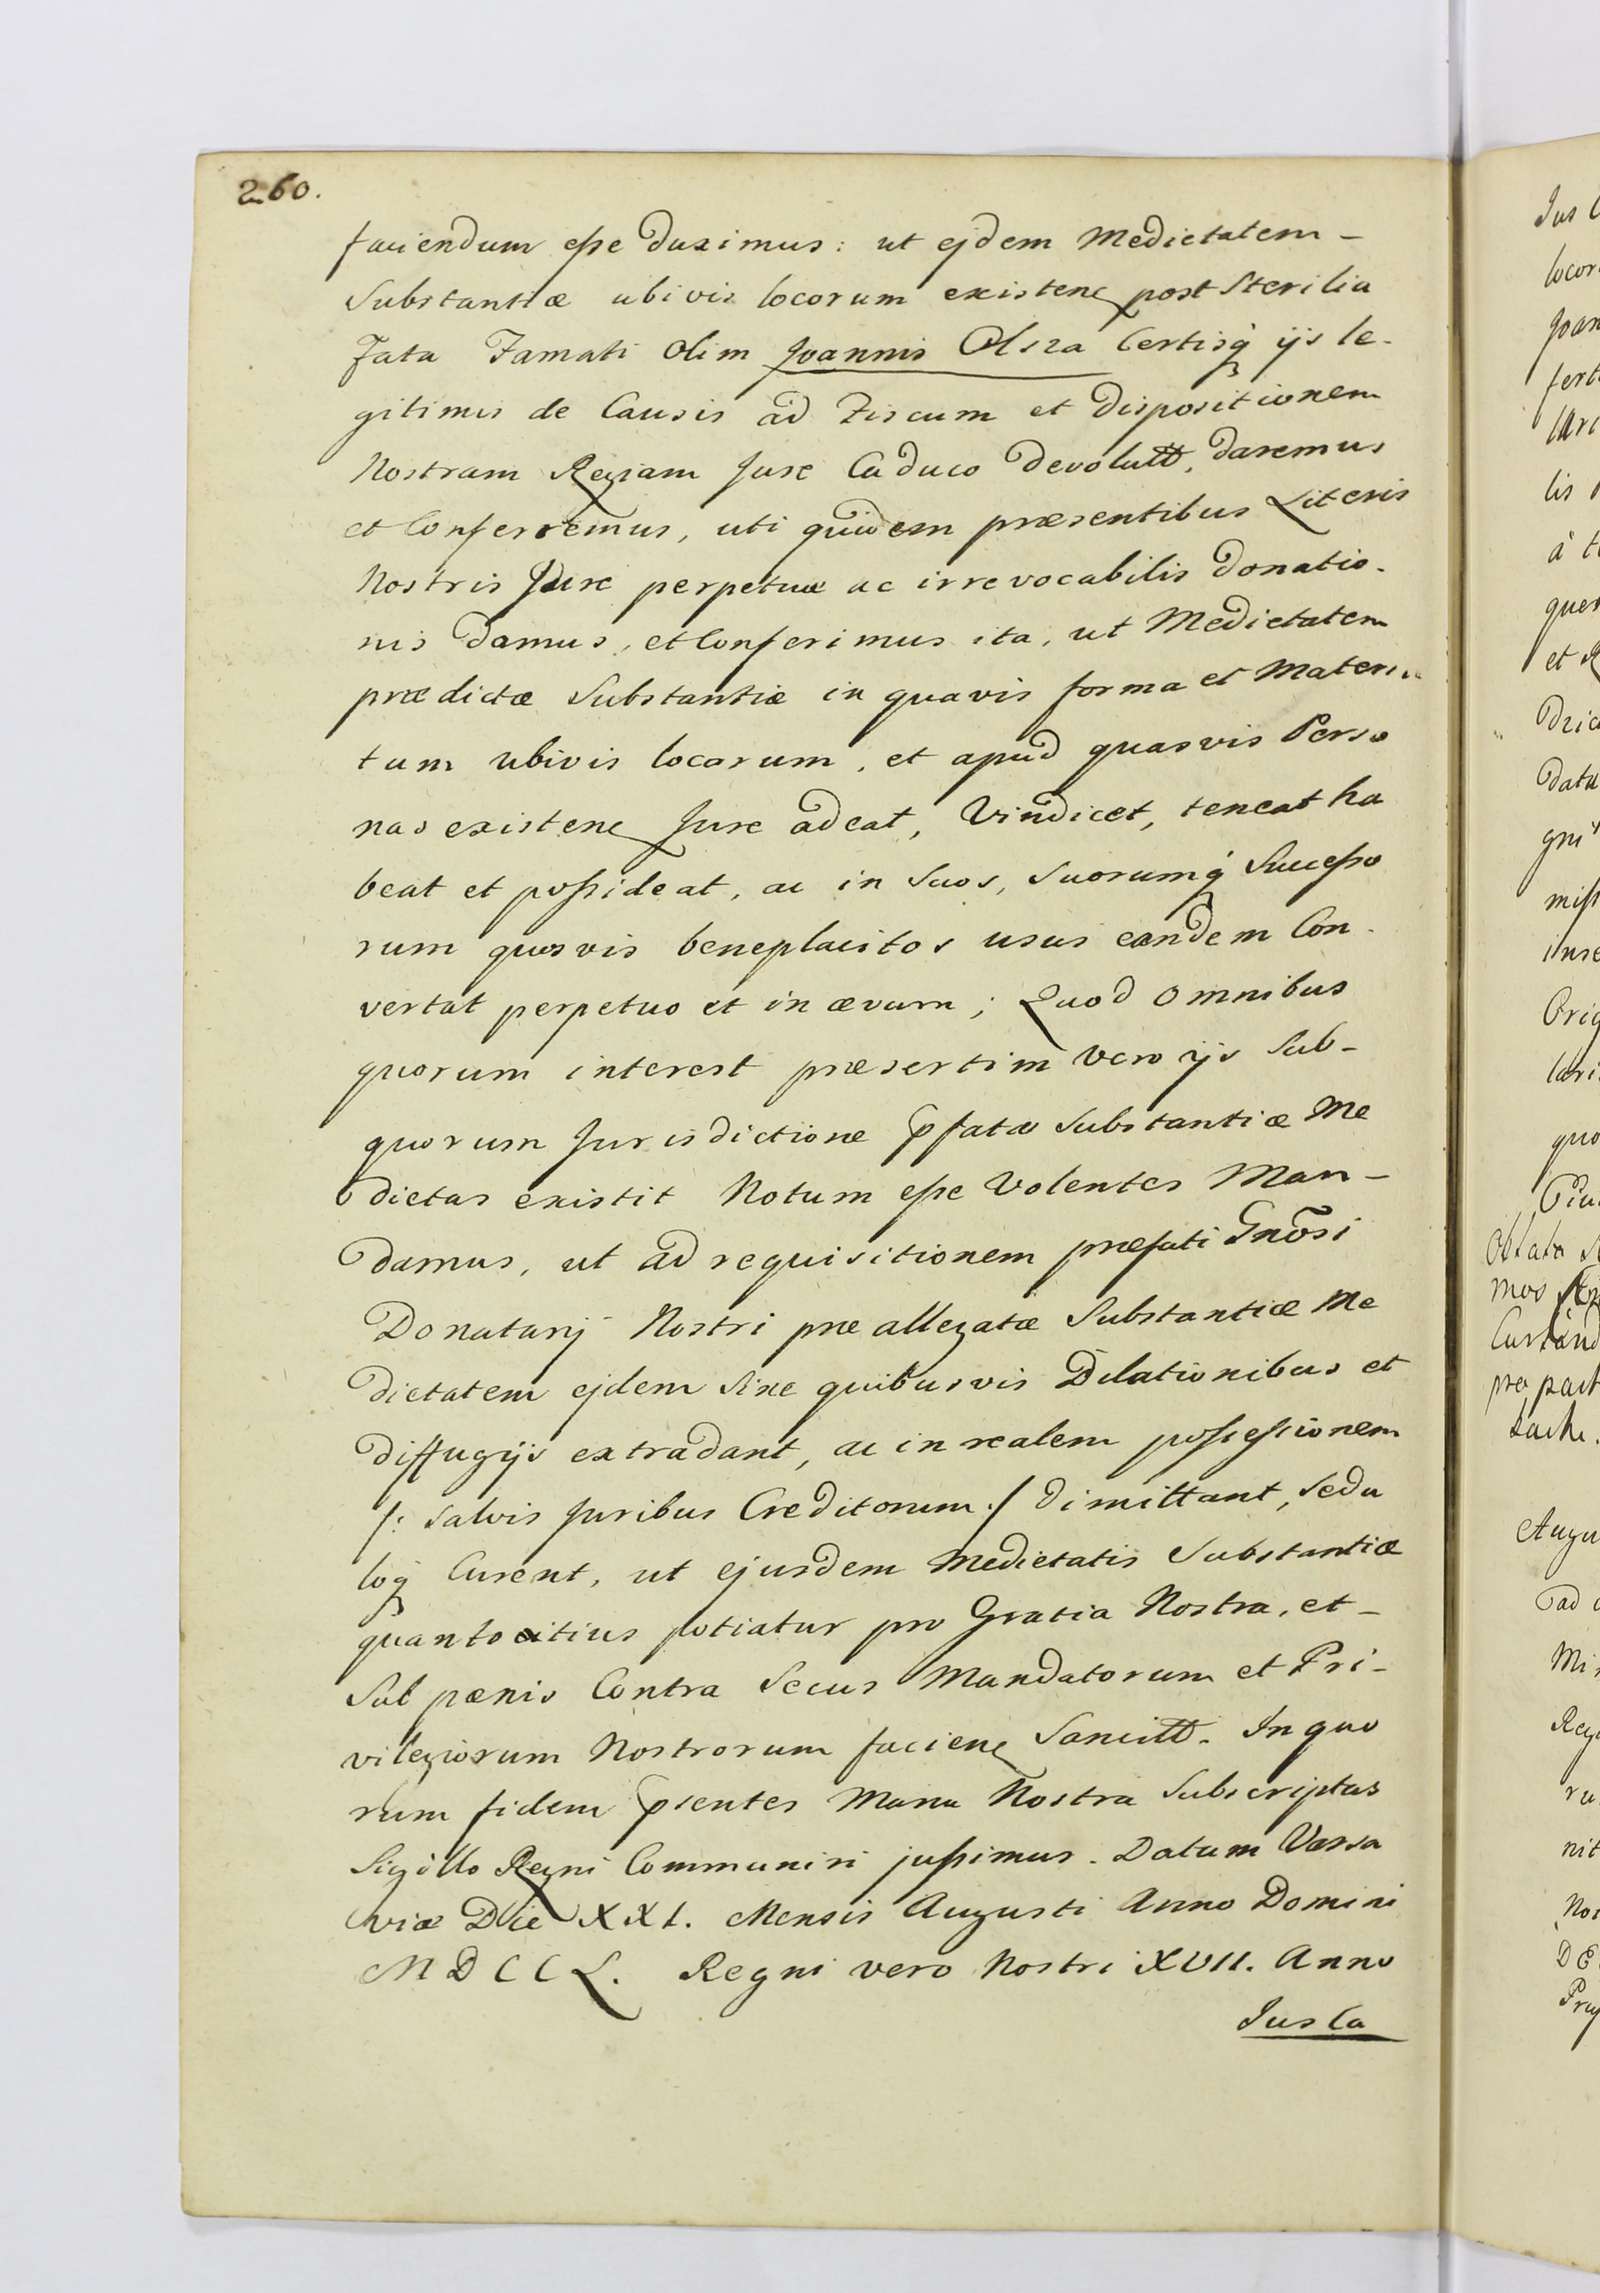 260.
faciendum eſse duximus: ut ejdem Medietatem -
Substantiæ ubivis locorum existenꝫ post Sterilia
Fata Famati olim Joannis Olsza Certisqꝫ ijs le-
gitimis de Causis ad Fiscum et dispositionem
Nostram Regiam Jure Caduco devolutt, daremus
et Conferremus, uti quidem præsentibus Literis
Nostris Jure perpetuæ ac irrevocabilis donatio-
nis damus, et Conferimus ita, ut Medietatem
prædictæ Substantiæ in quavis forma et Materia
tum ubivis locorum, et apud quasvis Perso
nas existenꝫ Jure adeat, Vindicet, teneat ha
beat et poſsideat, ac in Suos, Suorumqꝫ Succeſso
rum quosvis beneplacitos usus eandem Con-
vertat perpetuo et in ævum; Quod omnibus
quorum interest præsertim vero ijs Sub-
quorum Jurisdictione p̄fatæ Substantiæ Me
dietas existit Notum eſse Volentes Man-
damus, ut ad requisitionem præfati Gnõsi
Donatarij Nostri præallegatæ Substantiæ Me
dietatem ejdem Sine quibusvis Dilationibus et
diffugijs extradant, ac in realem poſseſsionem
/: Salvis Juribus Creditorum :/ dimittant, Sedu
loqꝫ Curent, ut ejusdem Medietatis Substantiæ
quantocitius potiatur pro Gratia Nostra, et -
Sub pænis Contra Secus Mandatorum et Pri-
vilegiorum Nostrorum facienꝫ Sancitt. In quo
rum fidem p̄sentes Manu Nostra Subscriptas
Sigillo Regni Communiri juſsimus. Datum Varsa
viæ Die XXI. Mensis Augusti Anno Domini
MDCCL. Regni vero Nostri XVII. Anno
Jus Ca
Jus C
locor
Joan
fert
lis
à t
quer
et R
Data
miſs
Orig
quo
Oblata
mos
pro part
Augu
ad
Mi
Reg
ru
nit
Nos
DE